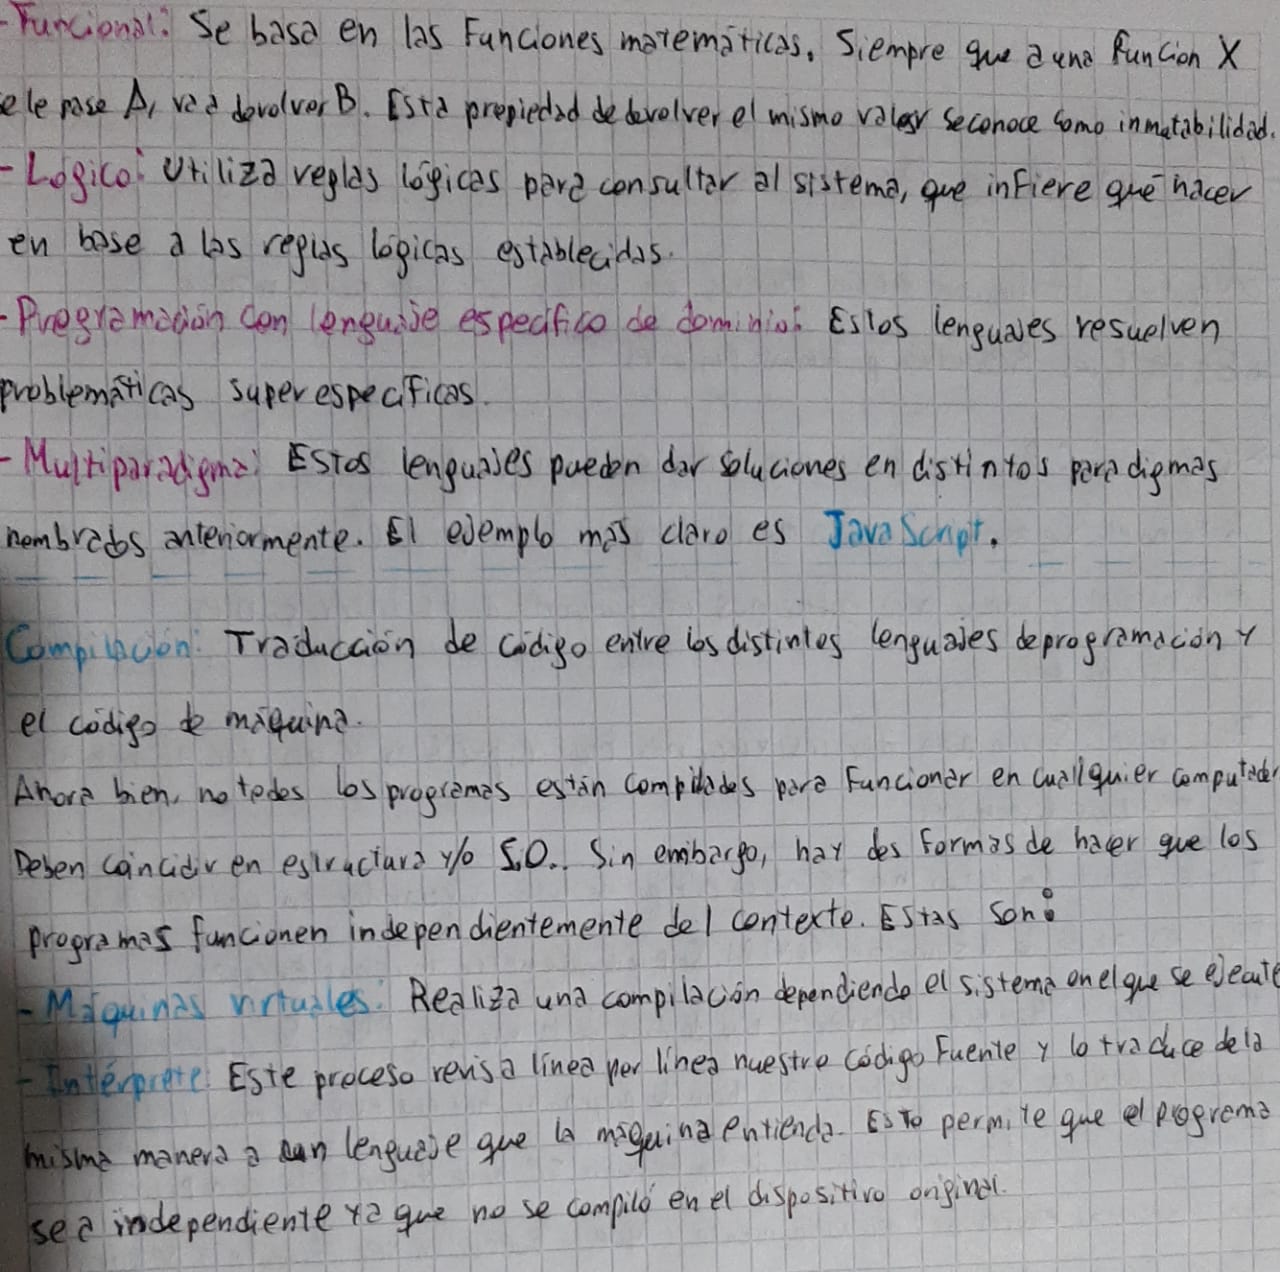 - Funcional: Se basa en las Funciones matemáticas. Siempre que a una función X
se le pase A, va a devolver B. Esta propiedad de devolver el mismo valor se conoce como inmutabilidad.
- Lógico: Utiliza reglas lógicas para consultar al sistema, que infiere qué hacer
en base a las reglas lógicas establecidas.
- Programación con lenguaje específico de dominio: Estos lenguajes resuelven
problemáticas super específicas.
- Multiparadigma: Estos lenguajes pueden dar soluciones en distintos paradigmas
nombrados anteriormente. El ejemplo más claro es JavaScript.
Compilación: Traducción de código entre los distintos lenguajes de programación y
el código de máquina.
Ahora bien, no todos los programas están compilados para Funcionar en cuallquier computador
Deben coincidir en estructura y/o S.O.. Sin embargo, hay dos Formas de hacer que los
programas funcionen independientemente del contexto. Estas son:
- Máquinas virtuales: Realiza una compilación dependiendo el sistema en el que se ejecute
- Intérprete: Este proceso revisa línea por línea nuestro código Fuente y lo traduce de la
misma manera a un lenguaje que la máquina entienda. Esto permite que el programa
sea independiente ya que no se compiló en el dispositivo original.